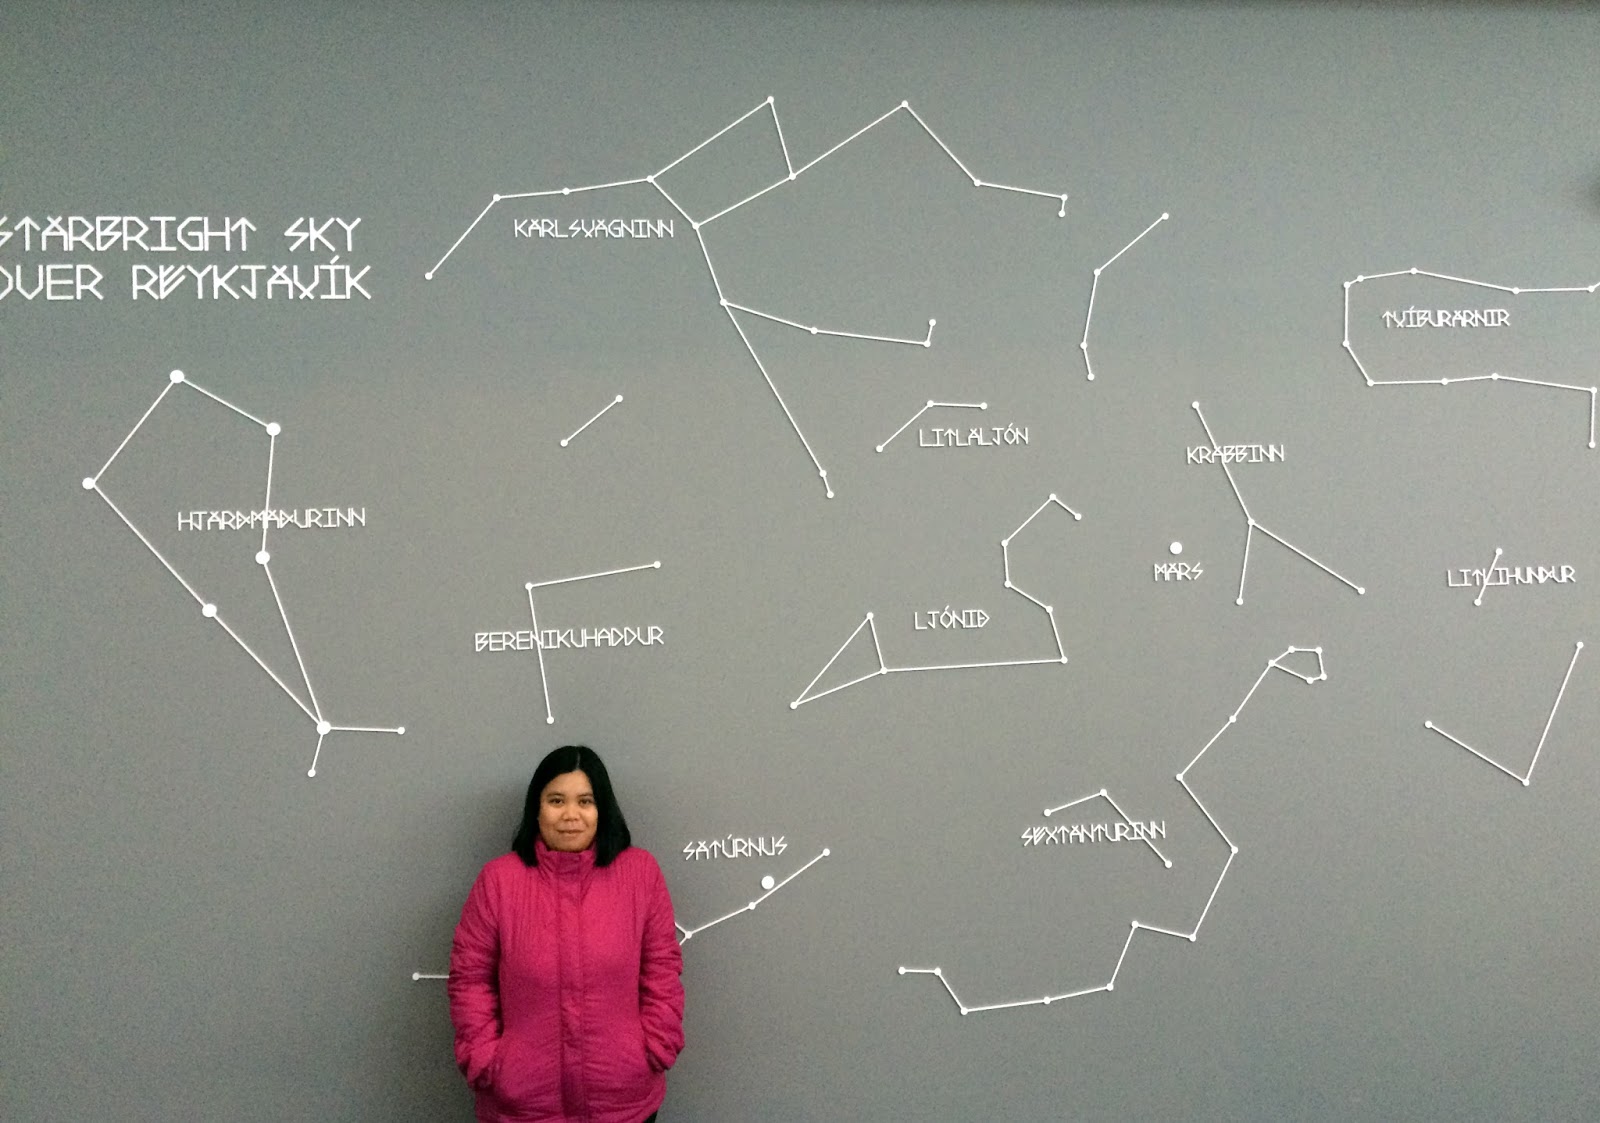 STARBRIGHT SKY
OVER REYKJAVÍK
KARLSVAGNINN
TVÍBURARNIR
LITLALJÓN
KRABBINN
HJARÐMAÐURINN
MARS
LITLIHUNDUR
BERENIKUHADDUR
LJÓNIÐ
SEXTANTURINN
SATÚRNUS